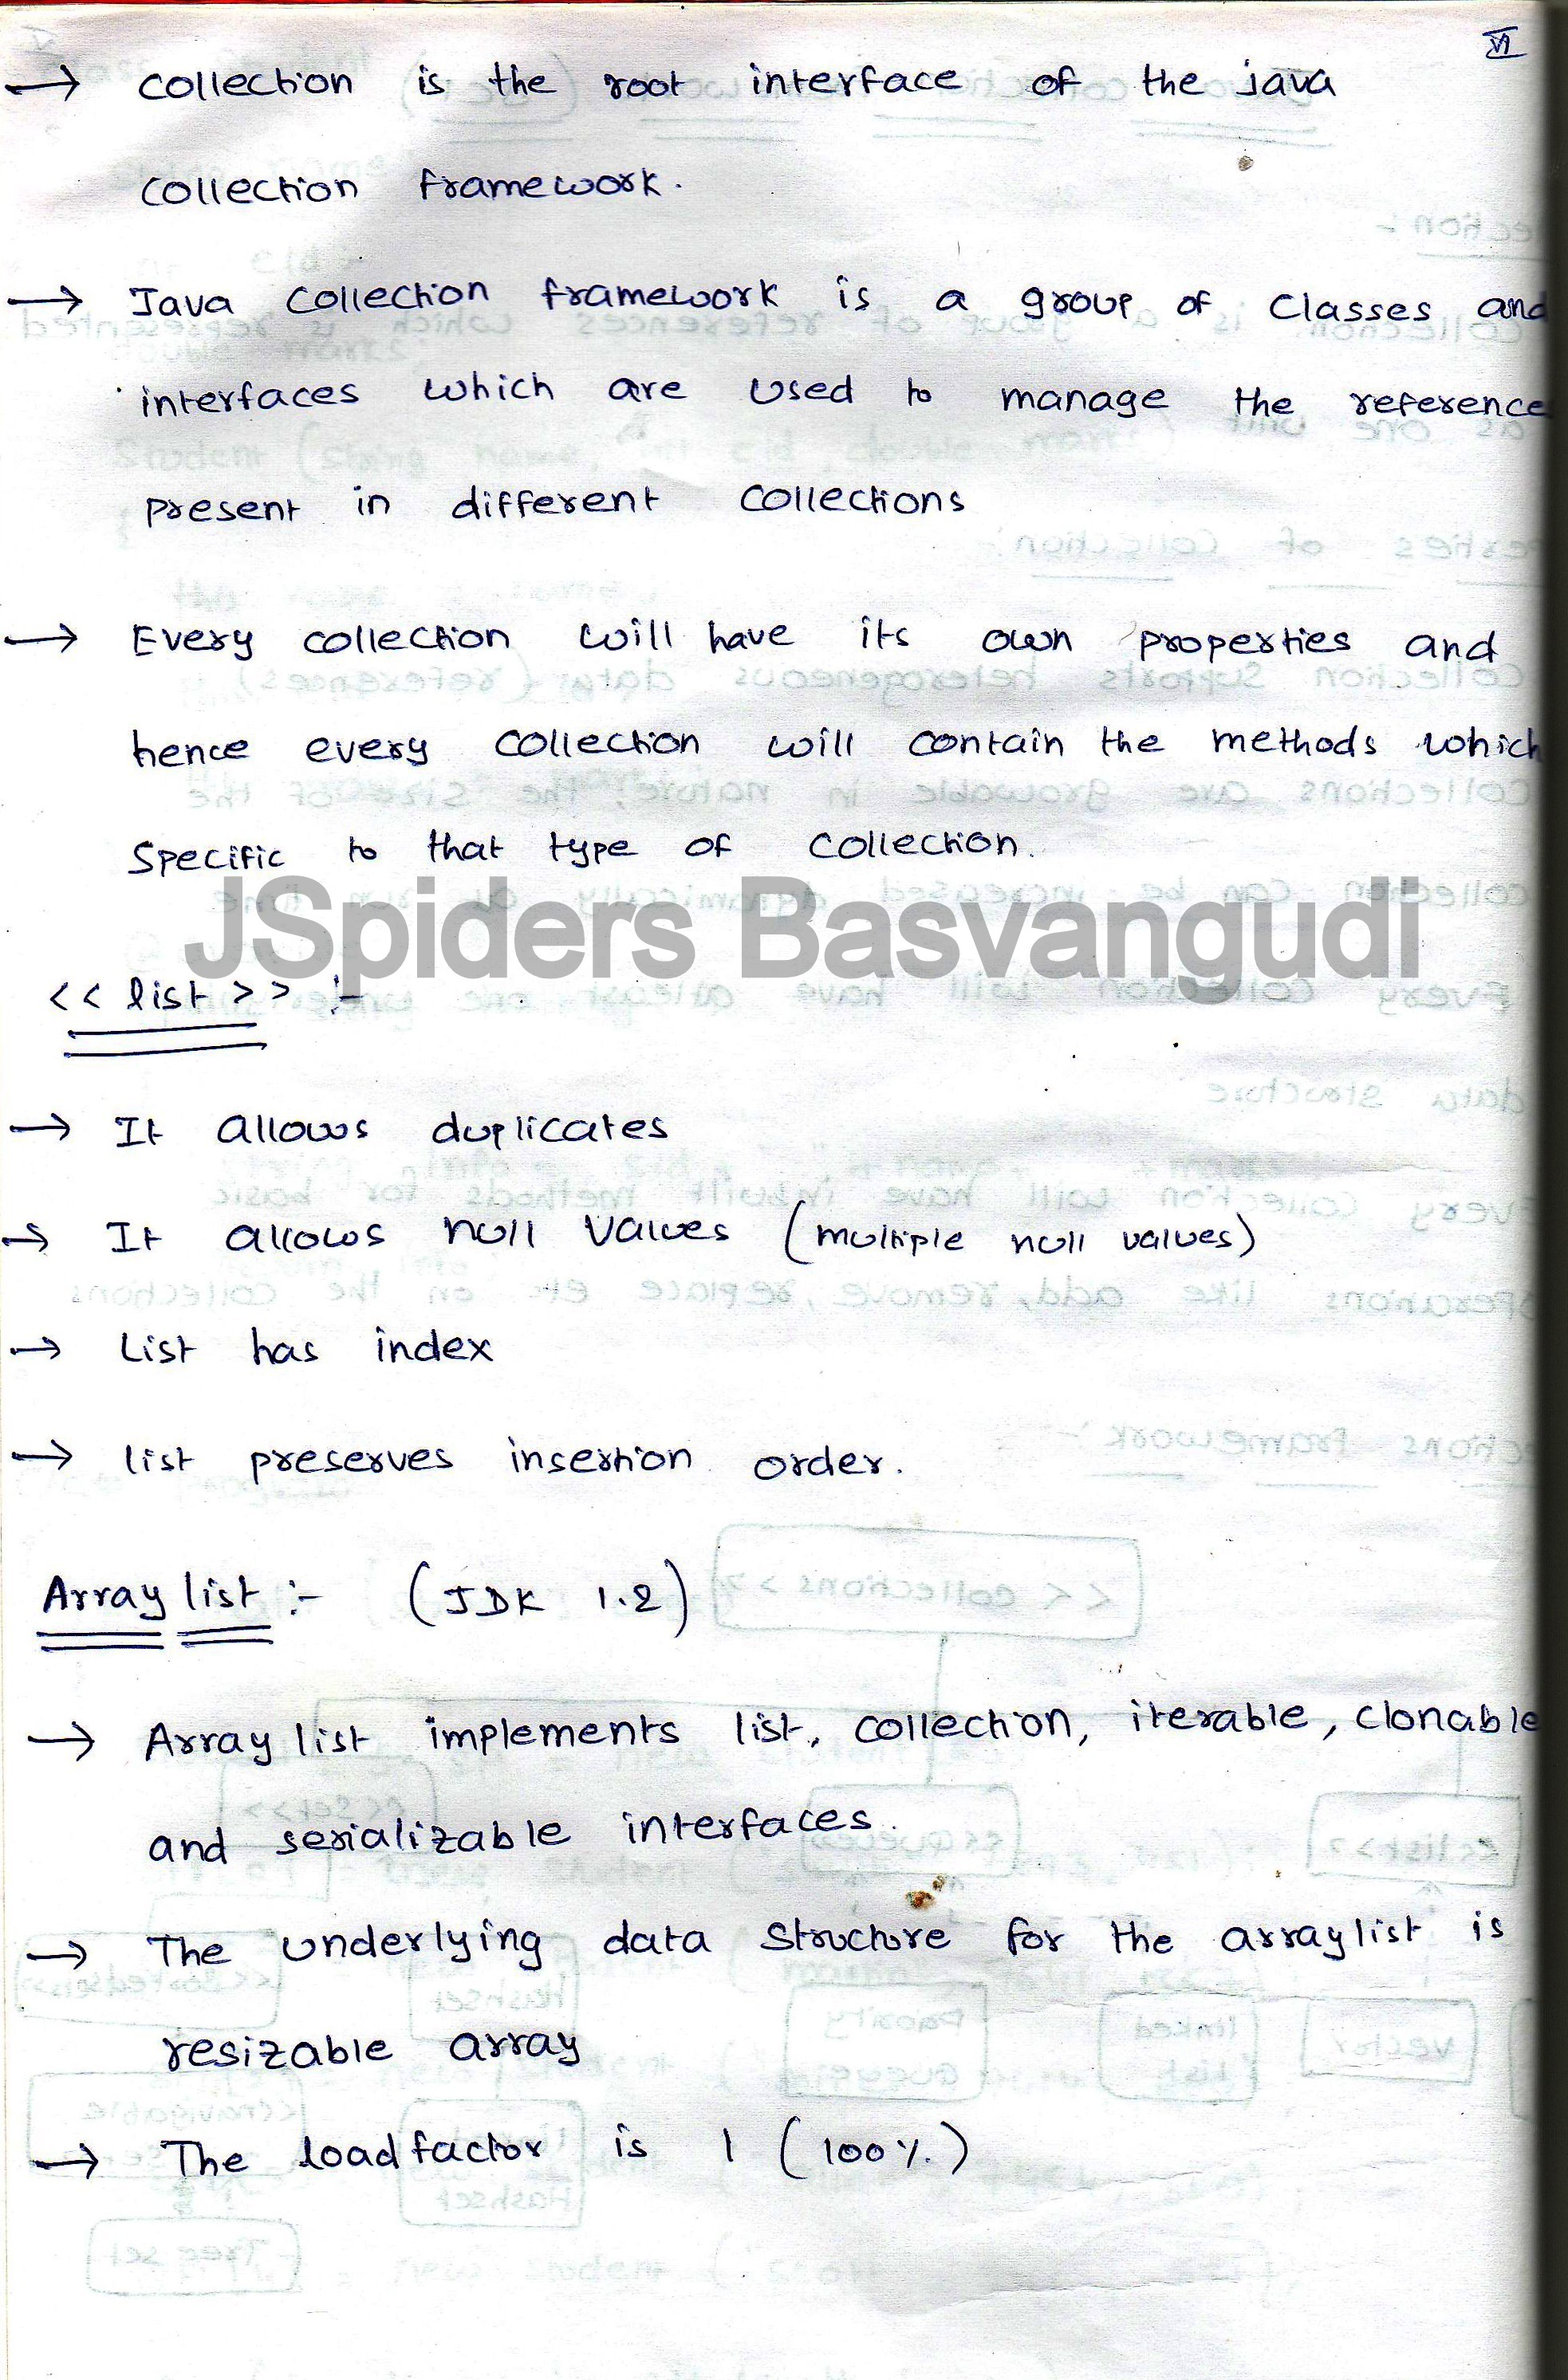 VI
→ collection is the root interface of the java
collection framework.
→ Java collection framework is a group of classes and
interfaces which are used to manage the reference
present in different collections
→ Every collection will have its own properties and
hence every collection will contain the methods which
specific to that type of collection.
JSpiders Basvangudi
<< list >> :-
→ It allows duplicates
→ It allows null values (multiple null values)
→ List has index
→ list preserves insertion order.
Array list :- (JDK 1.2)
→ Array list implements list, collection, iterable, clonable
and serializable interfaces.
→ The underlying data structure for the arraylist is
resizable array
→ The load factor is 1 (100%.)